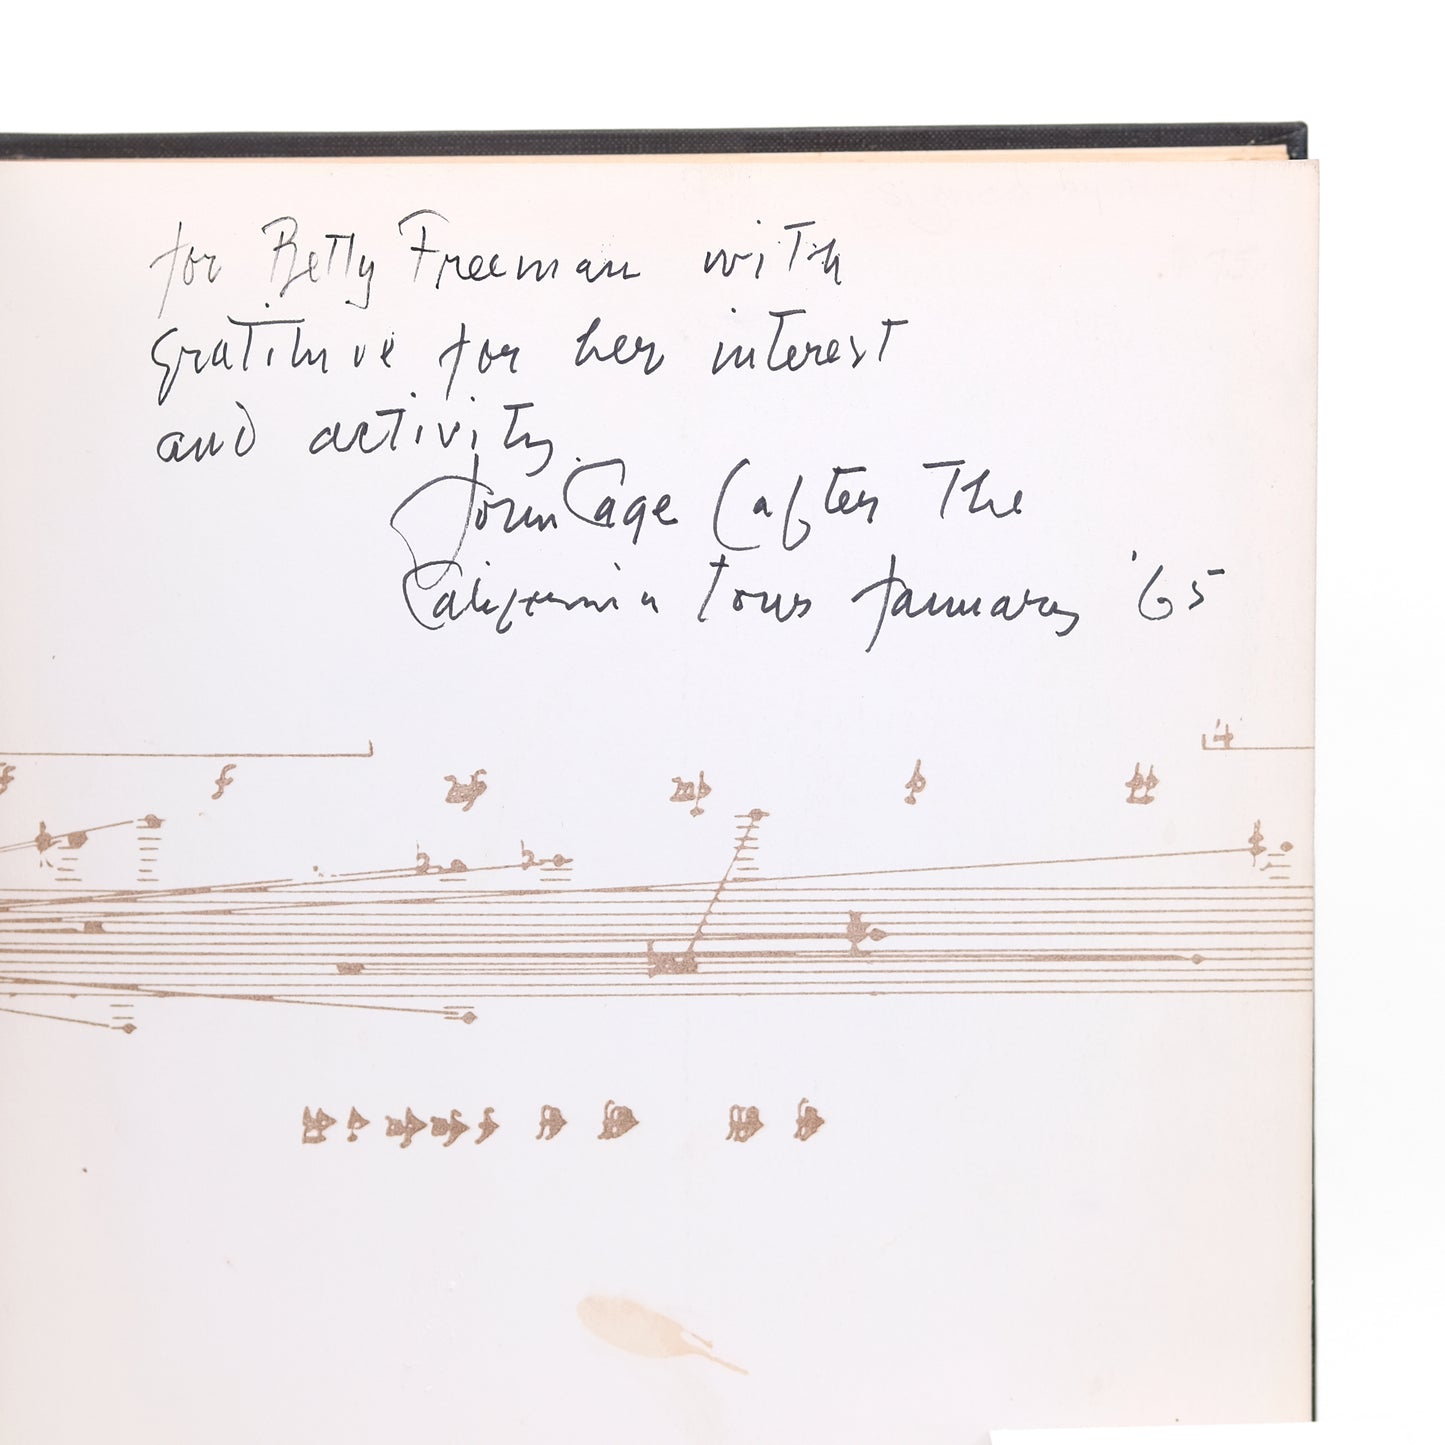 for Betty Freeman with
gratitude for her interest
and activity.
John Cage (after the
California tour January '65
4
f f mf mp p pp